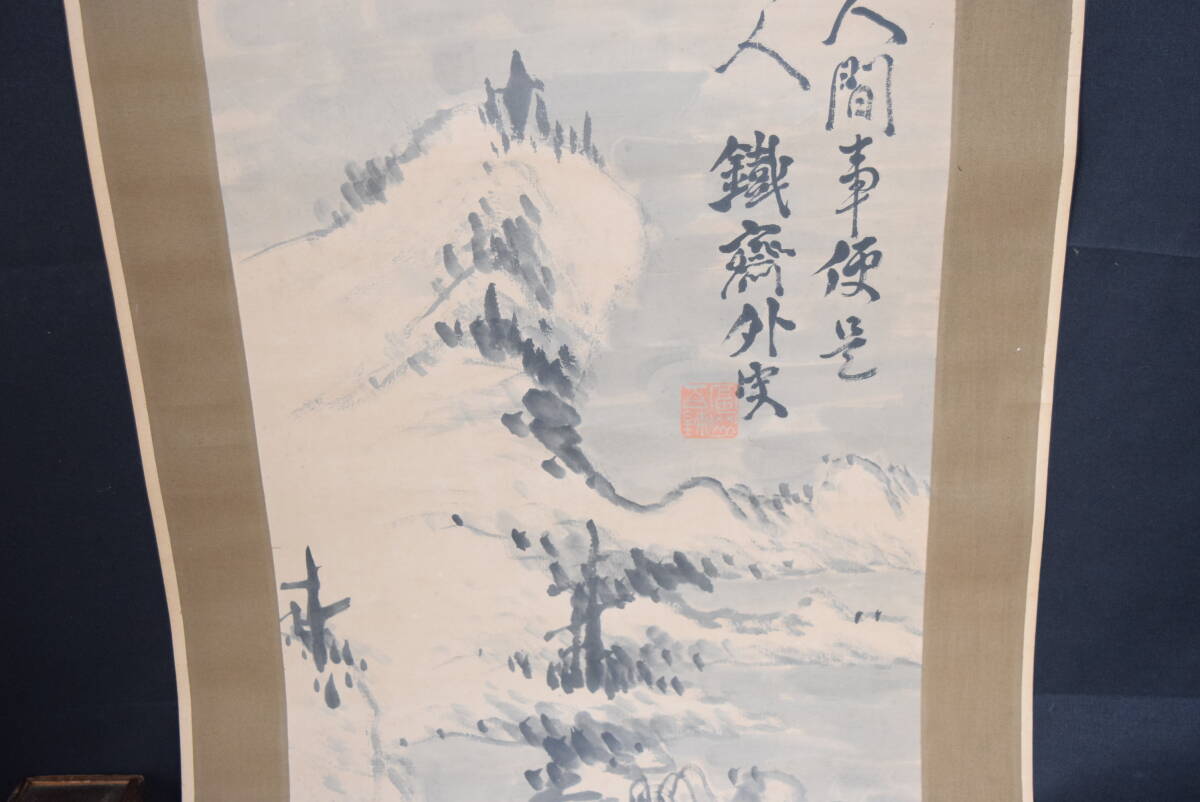 人間事便是
人 鐵齋外史